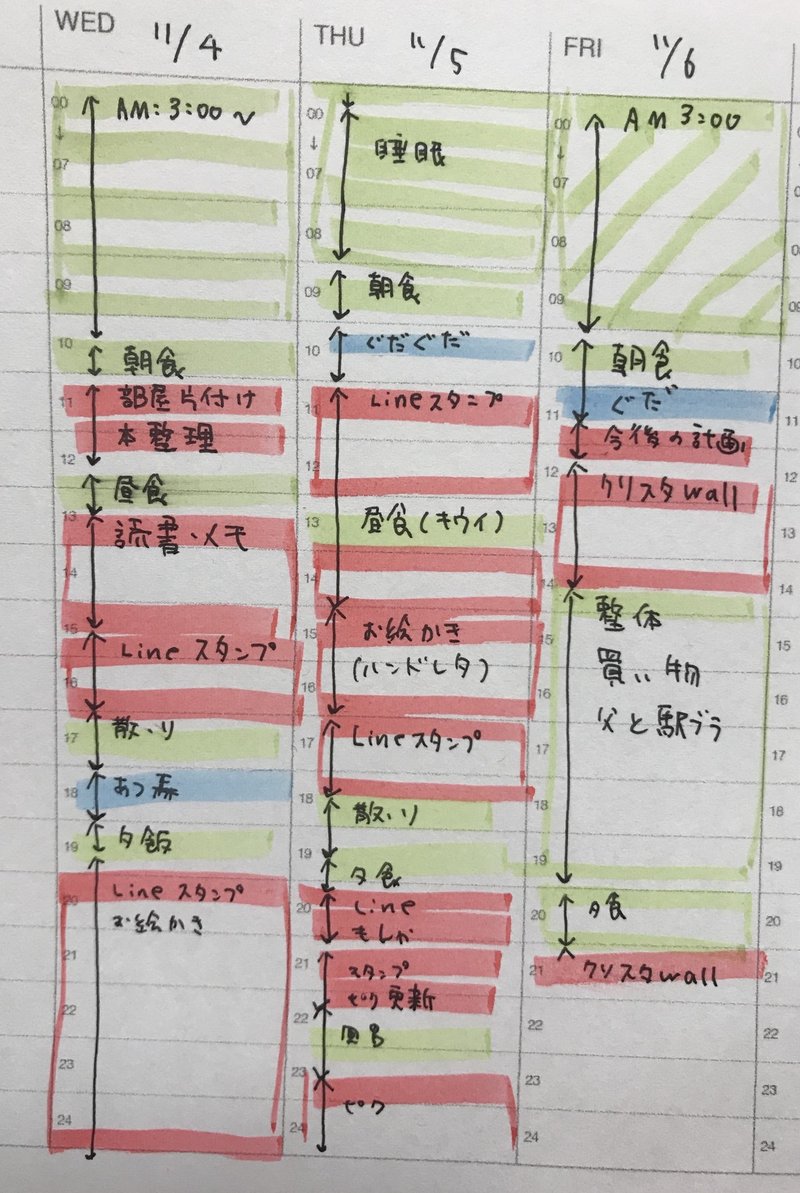 WED 11/4
00
↓
07
08
09
10
11
12
13
14
15
16
17
18
19
20
21
22
23
24
AM:3:00~
朝食
部屋片付け
本整理
昼食
読書・メモ
Lineスタンプ
あつ森
夕飯
Lineスタンプ
お絵かき
THU 11/5
00
↓
07
08
09
10
11
12
13
14
15
16
17
18
19
20
21
22
23
24
睡眠
朝食
ぐだぐだ
Lineスタンプ
昼食(キウイ)
お絵かき
(ハンドレタ)
Lineスタンプ
夕食
Line
もしか
スタンプ
ピク更新
ピク
FRI 11/6
00
↓
07
08
09
10
11
12
13
14
15
16
17
18
19
20
21
22
23
24
AM 3:00
朝食
ぐだ
今後の計画
クリスタwall
整体
買い物
父と駅ブラ
夕食
クリスタwall
07
08
09
10
11
12
13
14
15
16
17
18
19
20
21
22
23
24